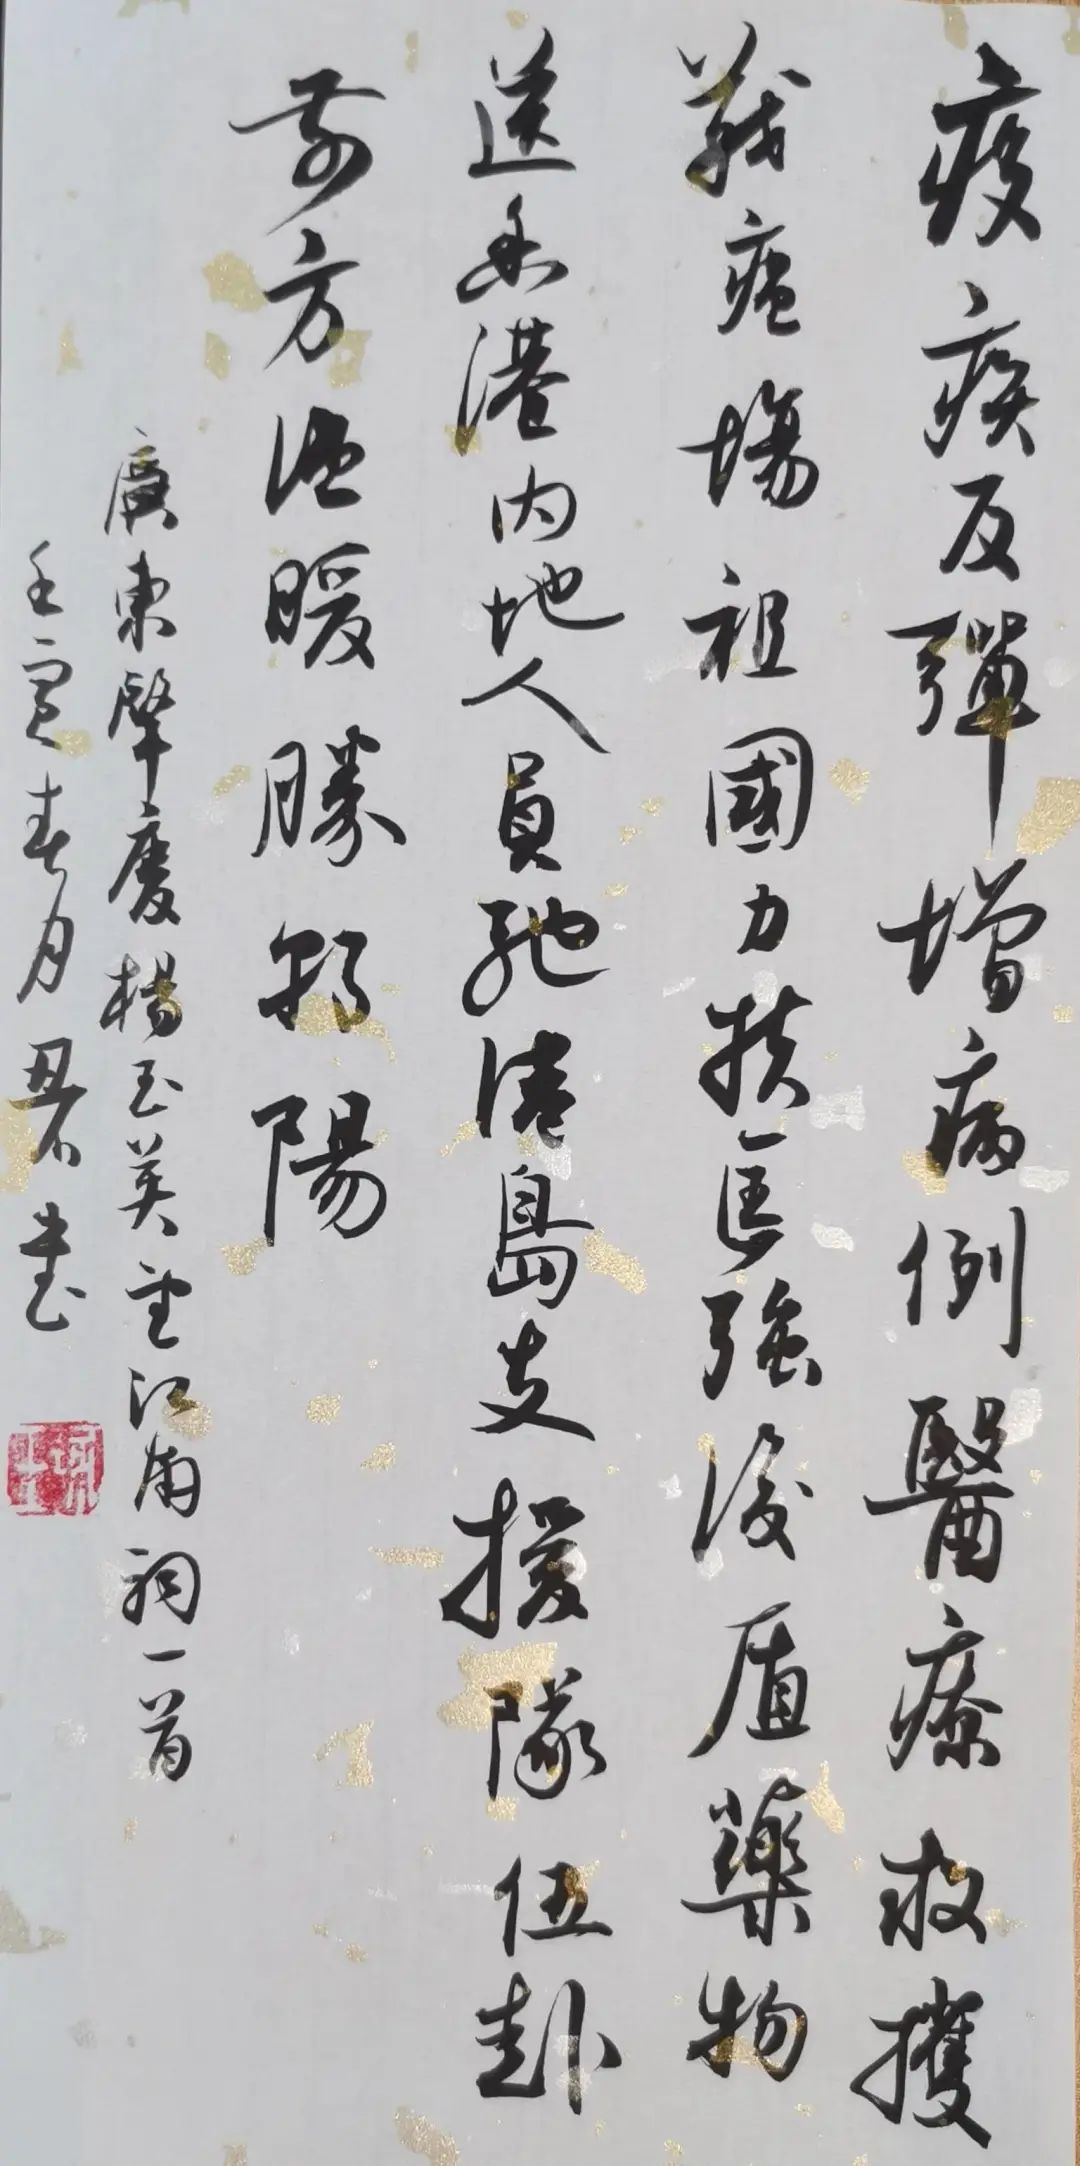 疫疾反彈增病例醫療救援
戰疫場祖國力扶匡強後盾藥物
送香港內地人員馳港島支援隊伍赴
前方溫暖勝朝陽
廣東肇慶楊玉英望江南詞一首
壬寅春月君書